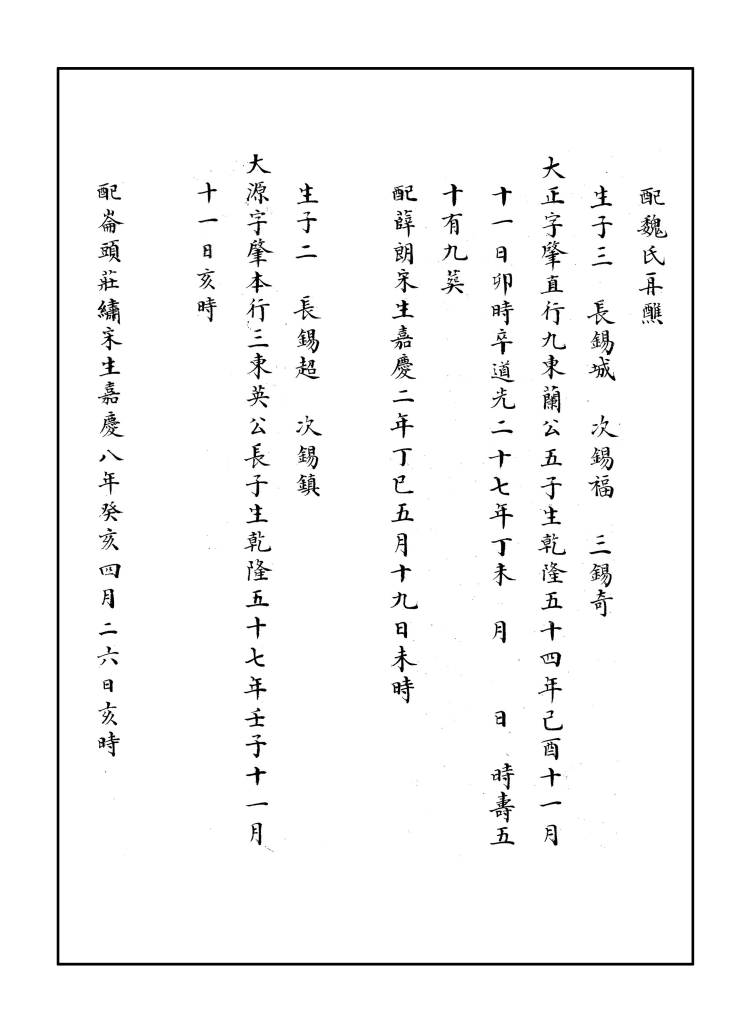 配魏氏再醮
生子三　長錫城　次錫福　三錫奇
大正字肇直行九東蘭公五子生乾隆五十四年己酉十一月
十一日卯時卒道光二十七年丁未　月　日　時壽五
十有九葬
配薛朗宋生嘉慶二年丁巳五月十九日未時
生子二　長錫超　次錫鎮
大源字肇本行三東英公長子生乾隆五十七年壬子十一月
十一日亥時
配崙頭莊繡宋生嘉慶八年癸亥四月二六日亥時